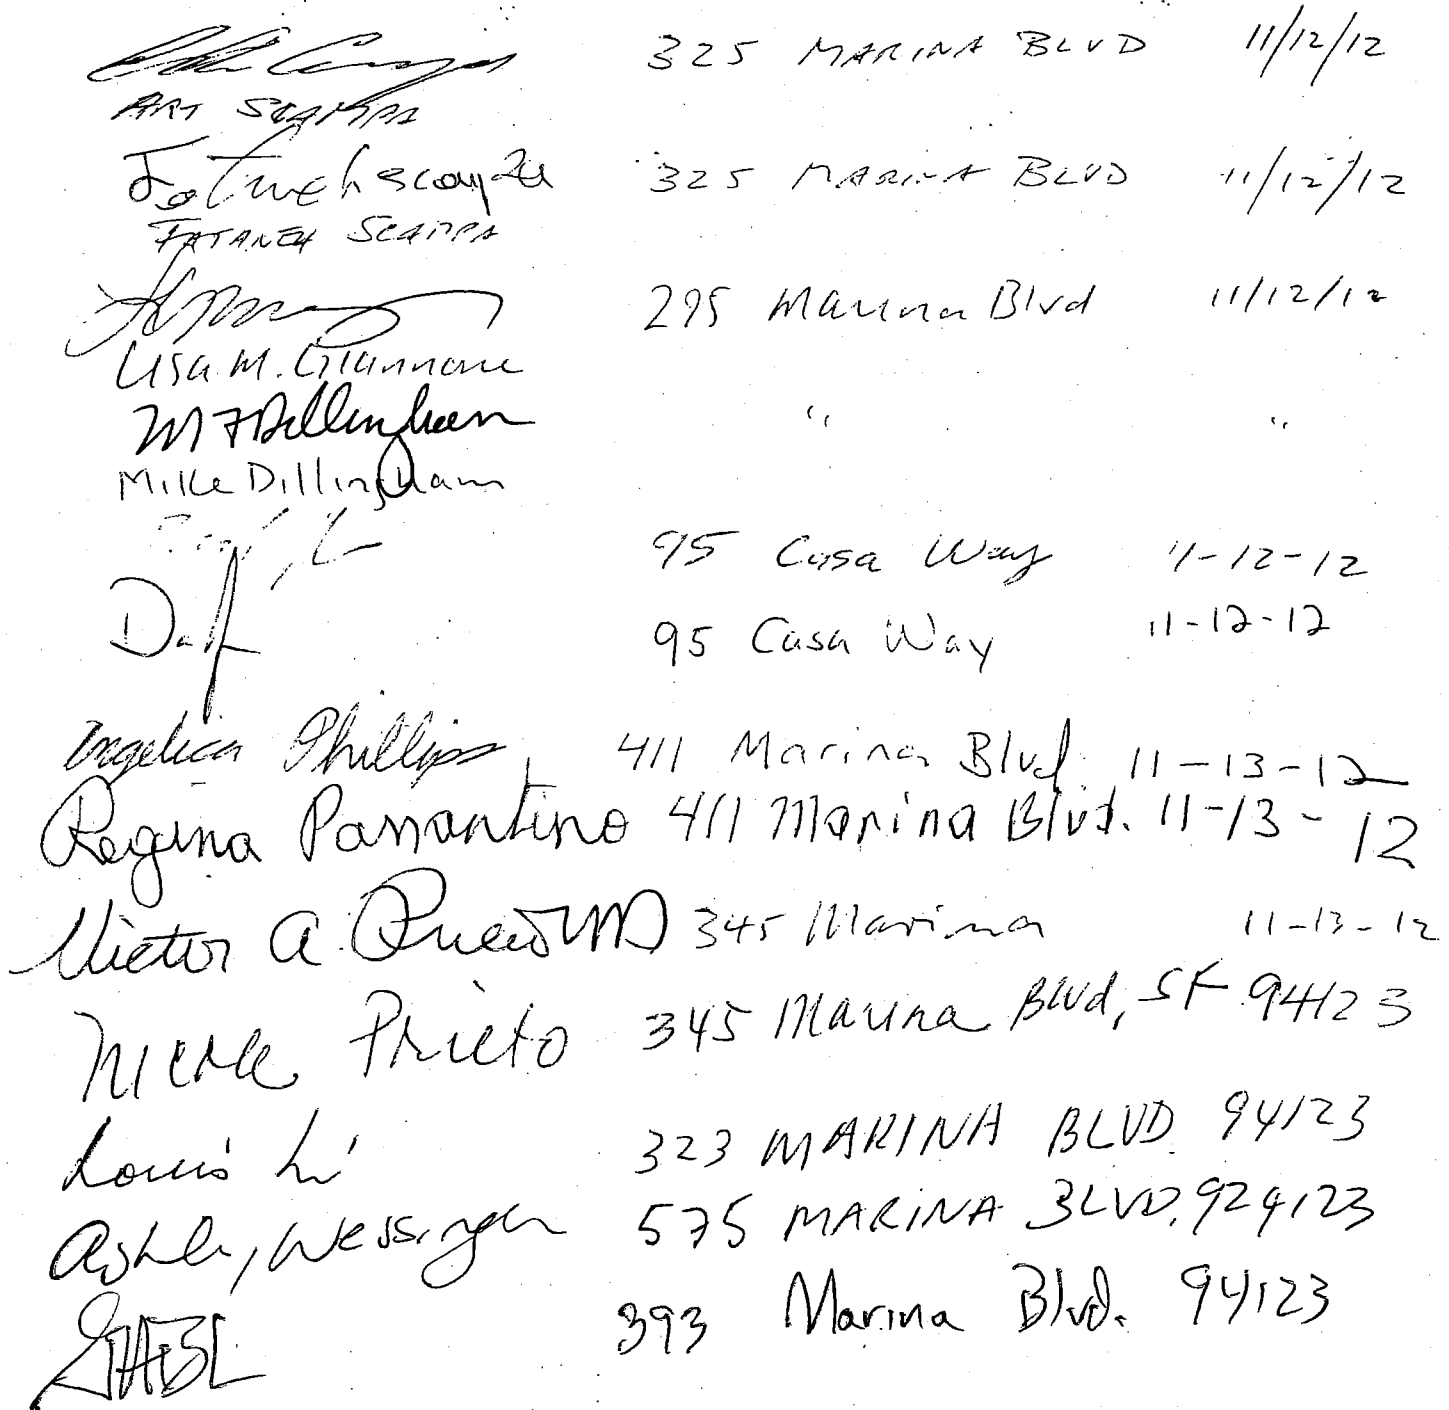 325 MARINA BLVD 11/12/12
ART SCAMPA
325 MARINA BLVD 11/12/12
FATANEH SCAMPA
295 Marina Blvd 11/12/12
Lisa M. Giannone
M F Dillingham " "
Mike Dillingham
95 Casa Way 11-12-12
95 Casa Way 11-12-12
Angelica Phillips 411 Marina Blvd 11-13-12
Regina Passantino 411 Marina Blvd. 11-13-12
Victor A. Prieto MD 345 Marina 11-13-12
Nicole Prieto 345 Marina Blvd, SF 94123
Louis Li 323 MARINA BLVD 94123
Ashley Wessinger 575 MARINA BLVD. 924123
393 Marina Blvd. 94123